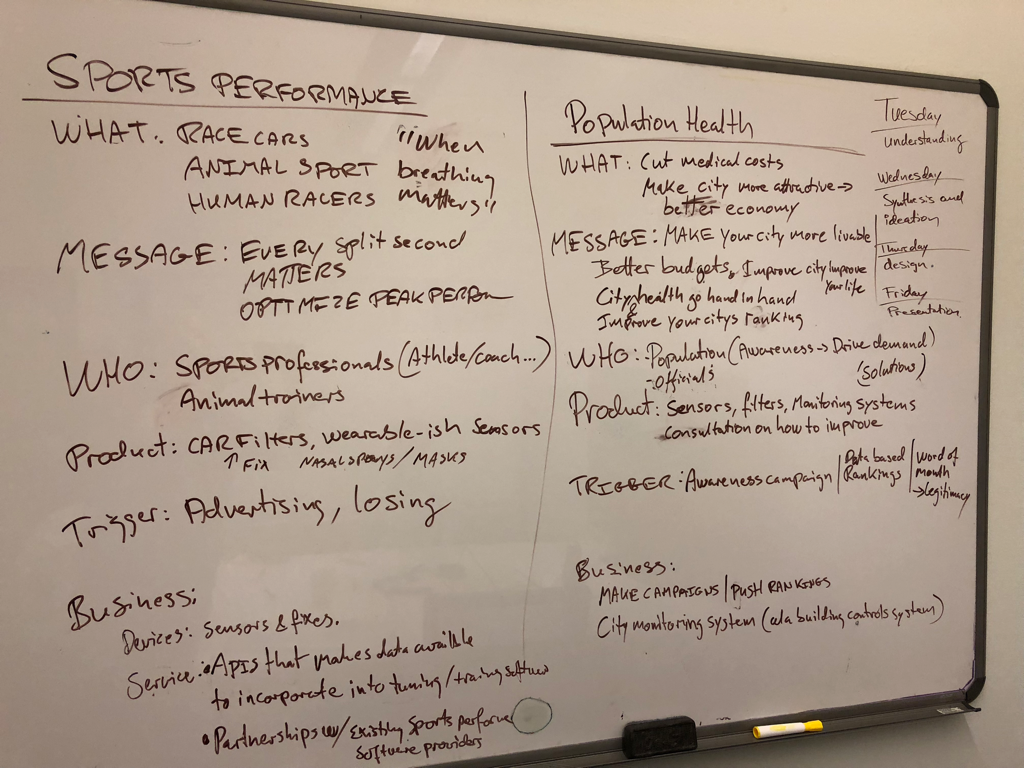 SPORTS PERFORMANCE
WHAT: RACE CARS
ANIMAL SPORT
HUMAN RACERS
"When
breathing
matters"
MESSAGE: EVERY split second
MATTERS
OPTIMEZE PEAK PERFOR
WHO: SPORTS professionals (Athlete/coach...)
Animal trainers
Product: CAR Filters, wearable-ish sensors
↑ Fix NASAL SPRAYS / MASKS
Trigger: Advertising, losing
Business:
Devices: sensors & fixes.
Service: • APIs that makes data available
to incorporate into tuning/training software
• Partnerships w/ existing sports performe
software providers
Population Health
WHAT: Cut medical costs
Make city more attractive →
better economy
MESSAGE: MAKE your city more livable
Better budgets, Improve city Improve
your life
City & health go hand in hand
Improve your citys ranking
WHO: - Population (Awareness → Drive demand)
- Officials (Solutions)
Product: Sensors, filters, Monitoring systems
consultation on how to improve
TRIGGER: Awareness campaign / Data based
Rankings / word of
mouth
→ legitimacy
Business:
MAKE CAMPAIGNS / PUSH RANKINGS
City monitoring system (ala building controls system)
Tuesday
Understanding
Wednesday
Synthesis and
ideation
Thursday
design.
Friday
Presentation.